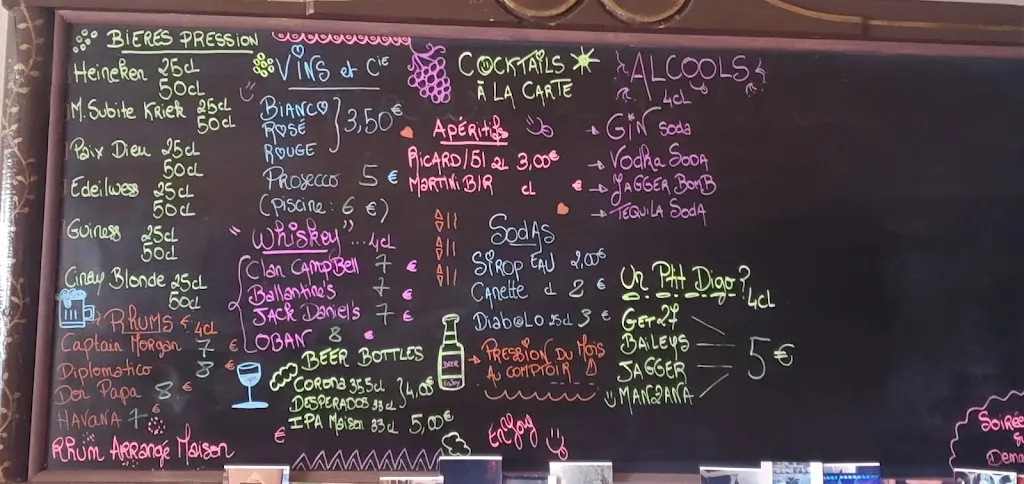 BIERES PRESSION
Heineken 25cl
50cl
M.Subite Kriek 25cl
50cl
Paix Dieu 25cl
50cl
Edeilwess 25cl
50cl
Guiness 25cl
50cl
Ciney Blonde 25cl
50cl
RHUMS 4cl
Captain Morgan 7 €
Diplomatico 8 €
Don Papa 8 €
HAVANA 7 €
Rhum ARRANGé MAISON €
VINS et Cie
BIANCO
ROSÉ
ROUGE
3,50€
PROSECCO 5 €
(PISCINE : 6 €)
"Whiskey"...4cL
Clan CAMPBell 7 €
Ballantine's 7 €
JACK DANiel's 7 €
OBAN 8 €
BEER BOTTLES
CORONA 35,5cl
DESPERADOS 33 cl
4,00€
IPA MAISON 33cl 5,00€
BEER
ENJOY
COCKTAILS
À LA CARTE
APÉRITIFS
RICARD/51 2L 3,00€
MARTINI B/R cl €
SODAS
SIROP EAU 2,00€
CANETTE cl 2 €
DIABOLO 25cl 3 €
PRESSION DU MOIS
AU COMPTOIR
ENJOY
ALCOOLS
4cl
GIN Soda
VODKA SODA
JAGGER BOMB
TEQUILA SODA
Un Ptit Digo ?
4cl
GET 27
BAILEYS
JAGGER
MANZANA
5€
Soirée
Dema